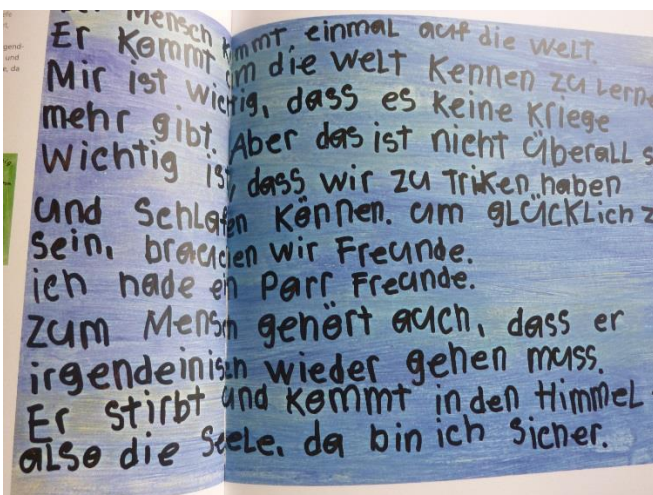 Der Mensch kommt einmal auf die Welt.
Er kommt um die Welt kennen zu lerne
Mir ist wichtig, dass es keine Kriege
mehr gibt. Aber das ist nicht überall s
Wichtig ist, dass wir zu Triken haben
und schlafen können. um glücklich z
sein, brauchen wir Freunde.
ich habe ein Parr Freunde.
Zum Mensch gehört auch, dass er
irgendeinisch wieder gehen muss.
Er stirbt und kommt in den Himmel
also die Seele, da bin ich sicher.